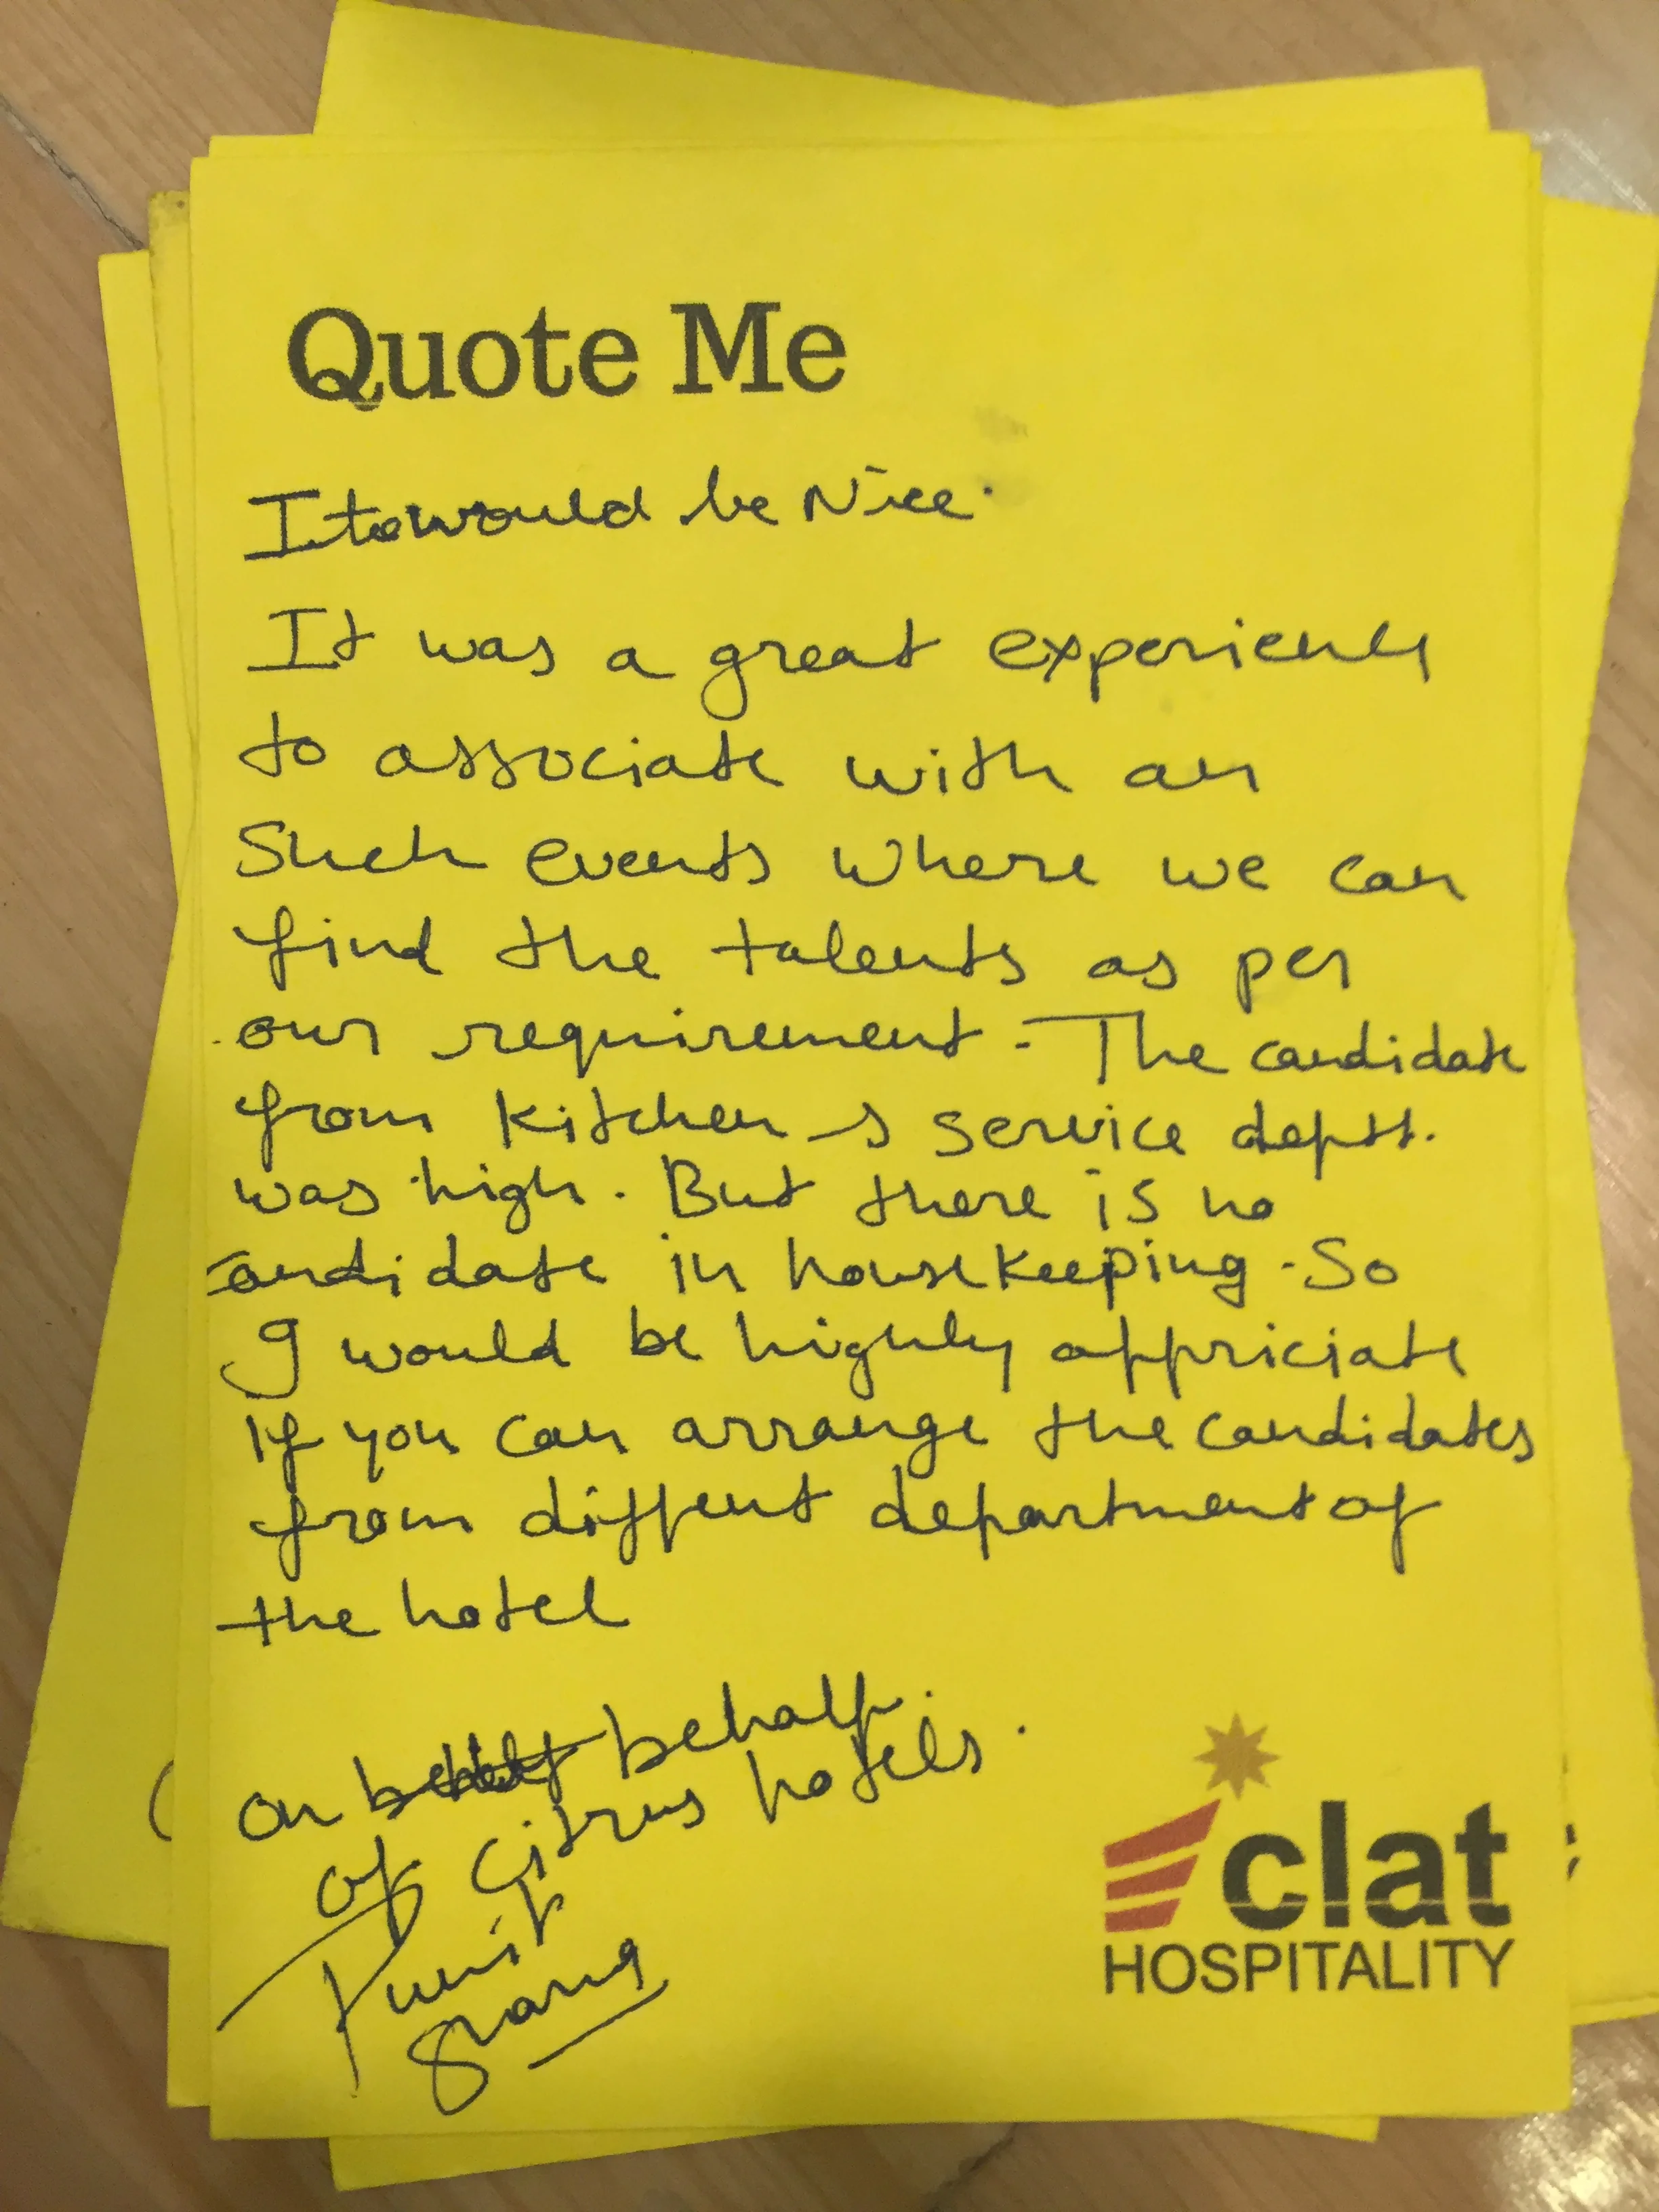 Quote Me
It would be Nice.
It was a great experience
to associate with an
Such events where we can
find the talents as per
our requirement - The candidate
from kitchen & service deptt.
was high. But there is no
candidate in housekeeping. So
I would be highly appriciate
If you can arrange the candidates
from diffent department of
the hotel
on behalf
of Citrus hotels.
Punit
clat
HOSPITALITY